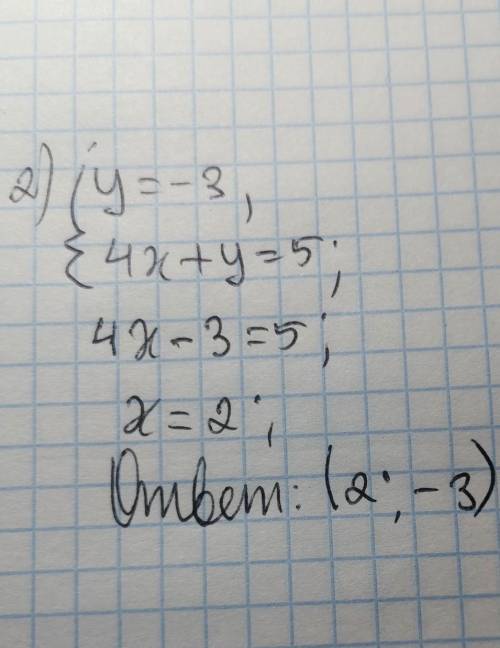 2) { y = -3,
4x + y = 5;
4x - 3 = 5;
x = 2;
Ответ: (2; -3)